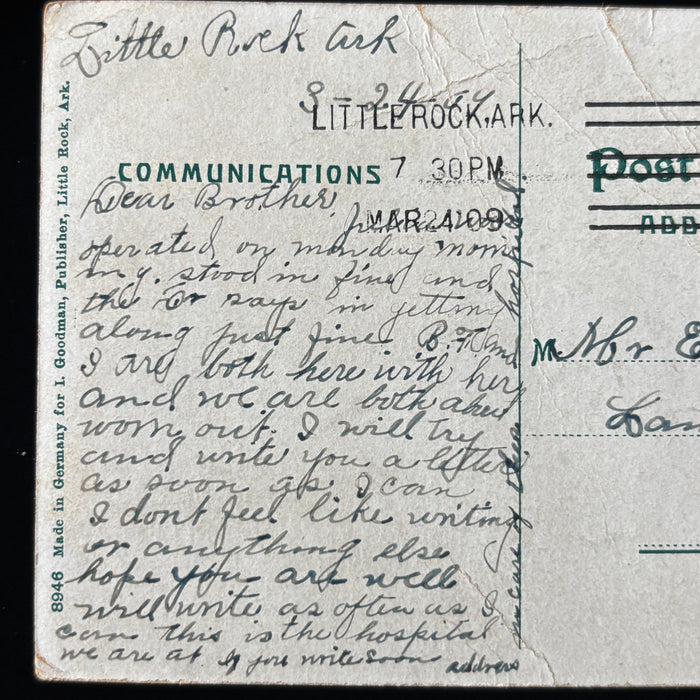 Little Rock Ark
3-24-09
LITTLE ROCK, ARK.
7 30 PM
MAR 24 09
COMMUNICATIONS
Dear Brother
was
operated on monday morn
ing. stood in fine and
the Dr says in getting
along just fine B.F. and
I are both here with her
and we are both about
worn out. I will try
and write you a letter
as soon as I can
I dont feel like writing
or anything else
hope you are well
will write as often as I
can this is the hospital
we are at if you write soon address
in care of hospital
8946 Made in Germany for I. Goodman, Publisher, Little Rock, Ark.
Post
ADD
M Mr E